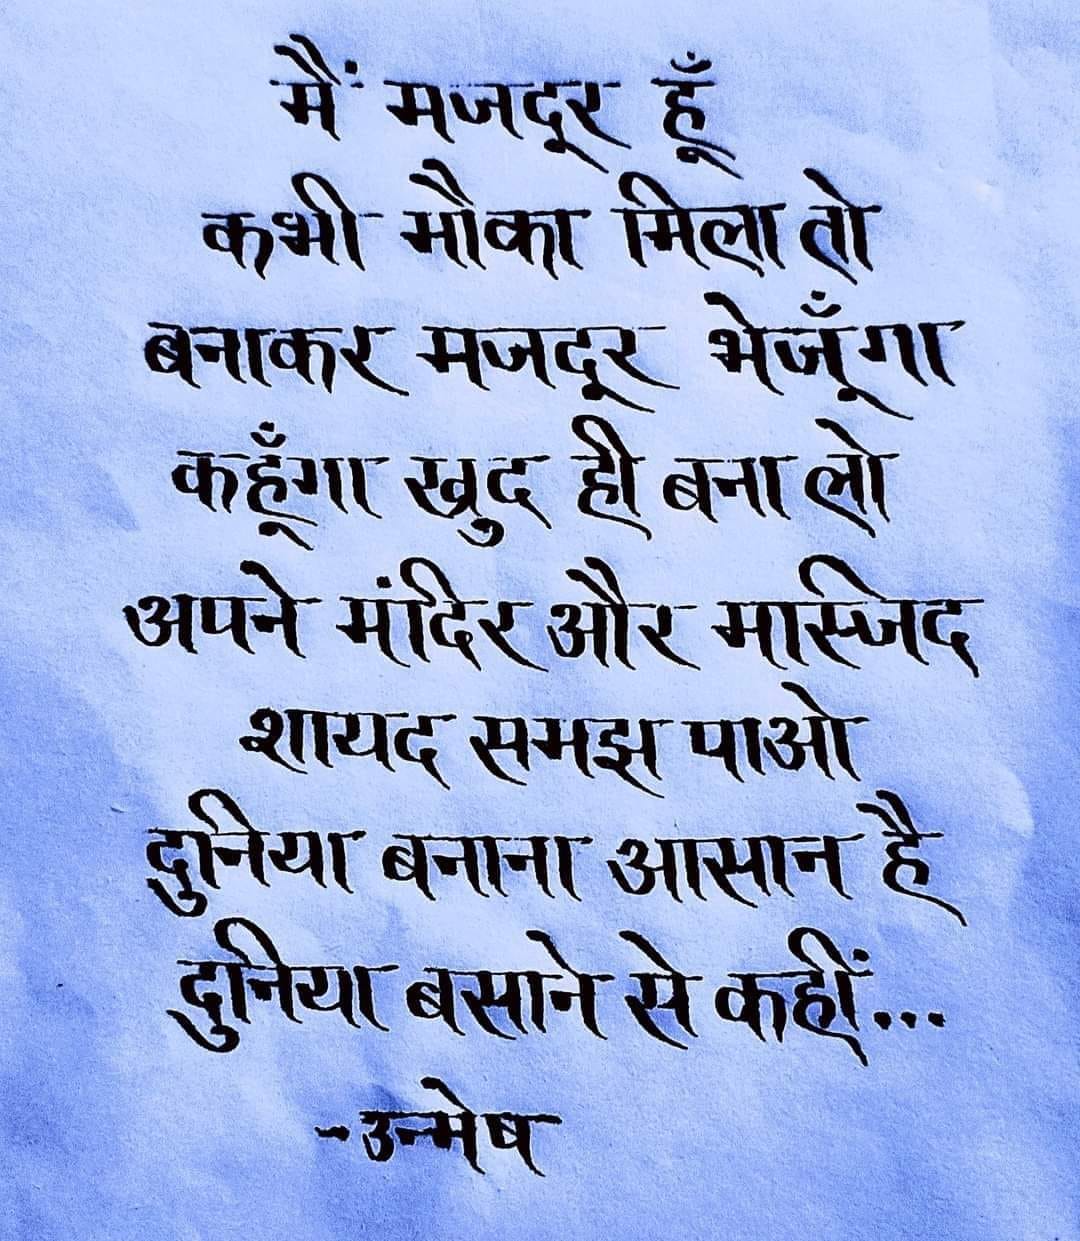 मैं मजदूर हूँ
कभी मौका मिला तो
बनाकर मजदूर भेजूँगा
कहूँगा खुद ही बना लो
अपने मंदिर और मास्जिद
शायद समझ पाओ
दुनिया बनाना आसान है
दुनिया बसाने से कहीं...
-उन्मेष